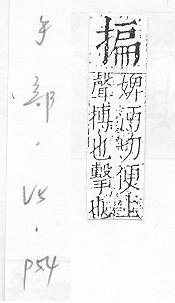 手部·V5·P54
揙
婢丏切便上
聲搏也擊也